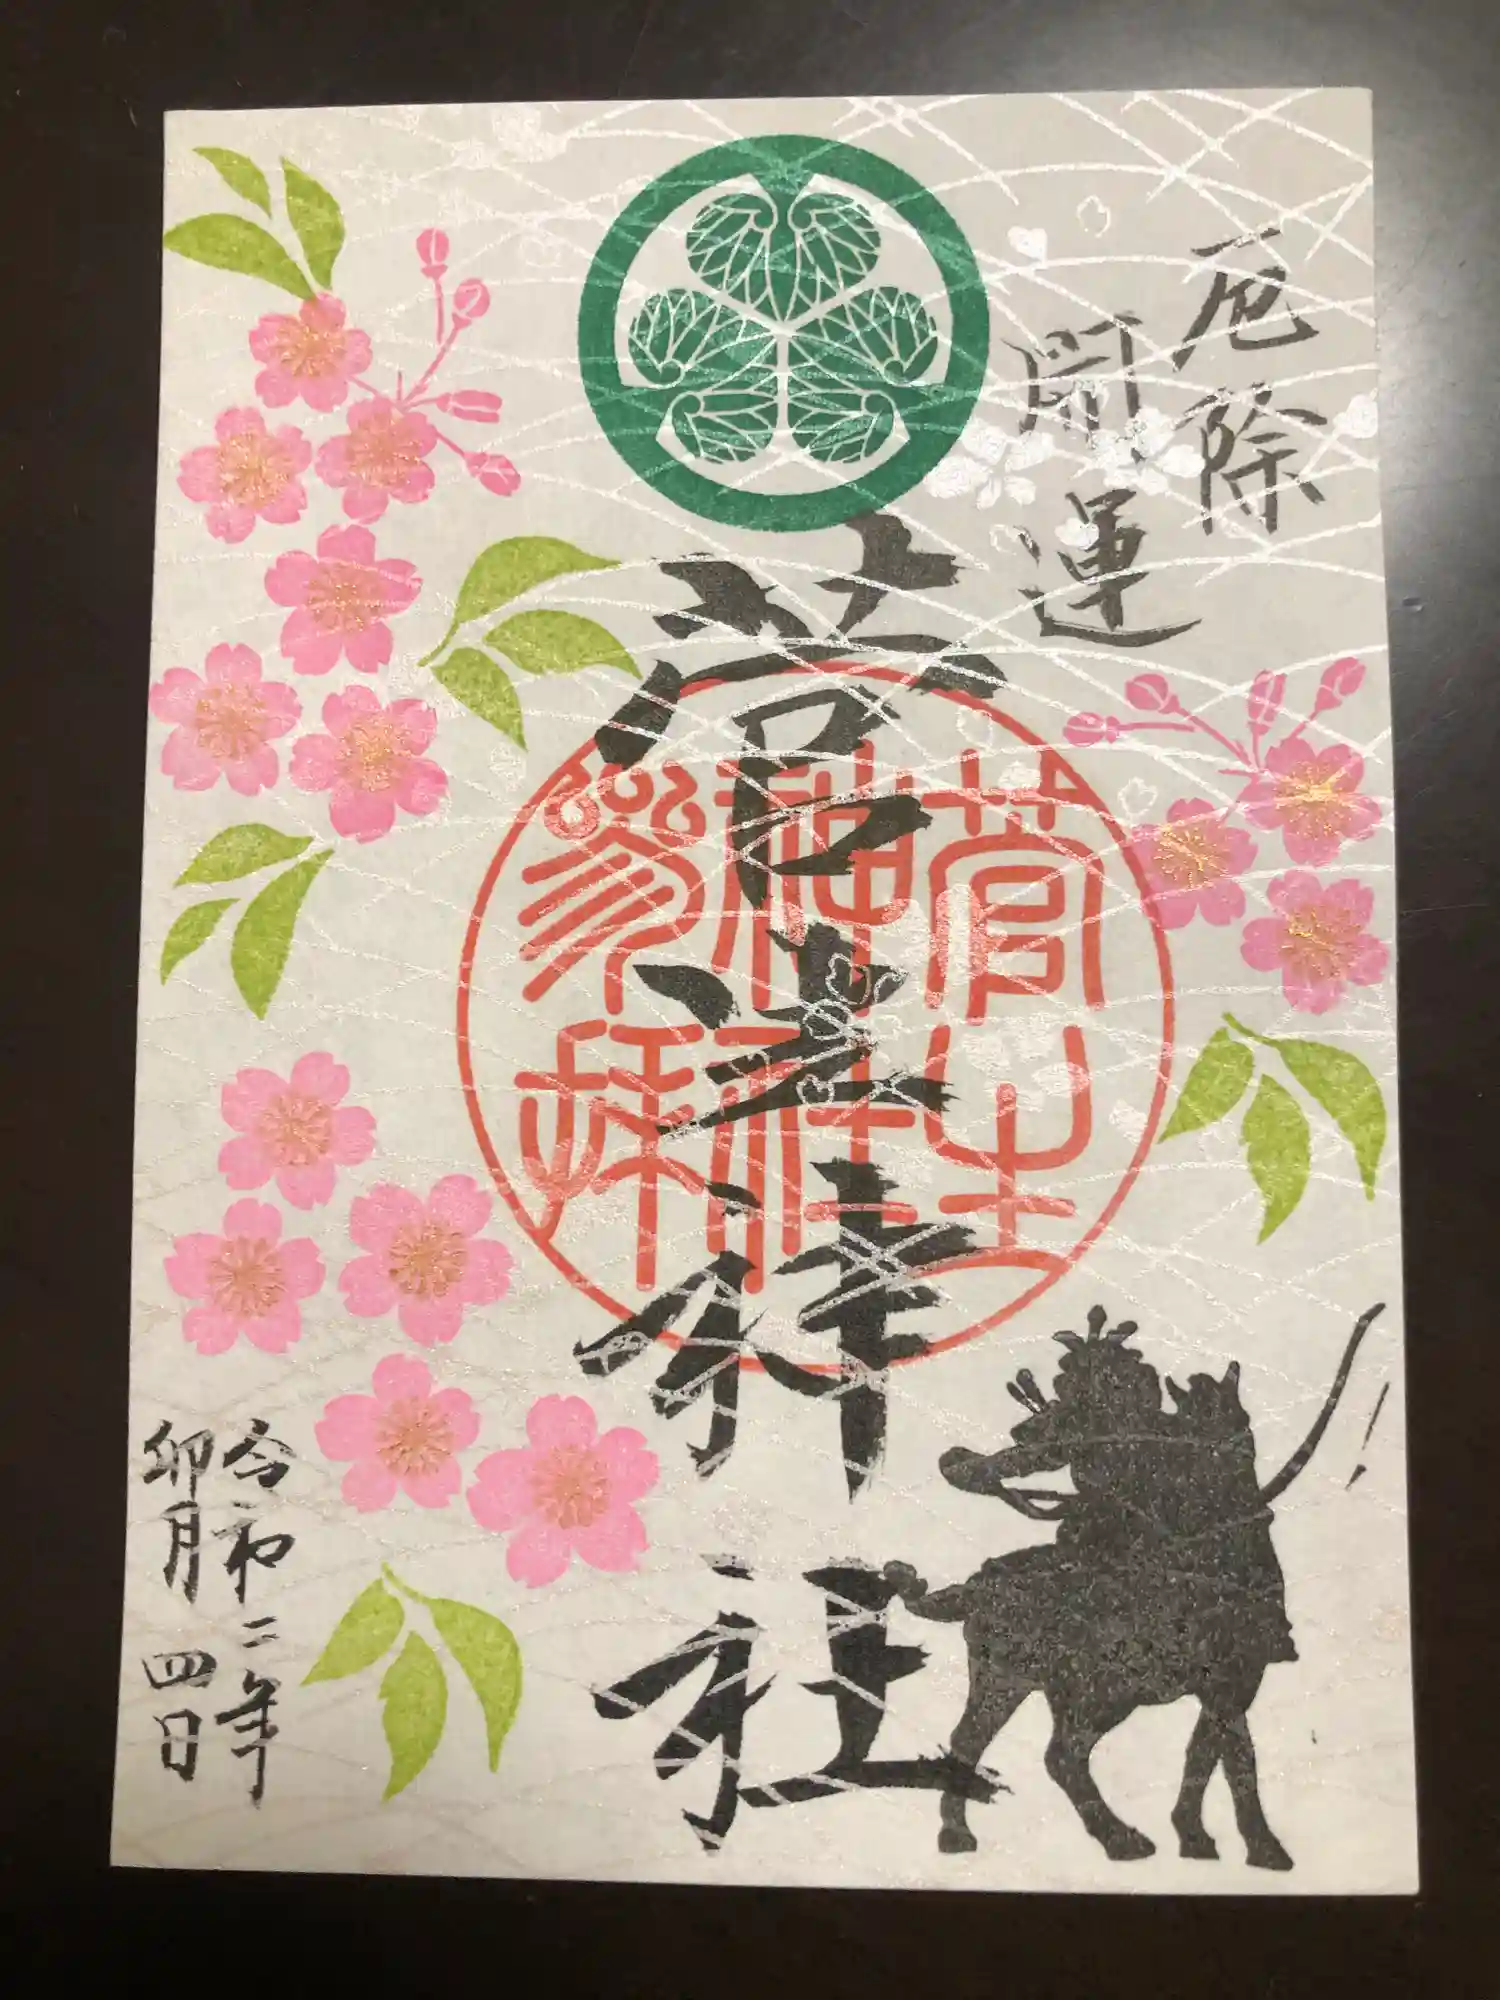 厄除
開運
菅生神社
菅生
神社
参拝
令和二年
卯月 四日